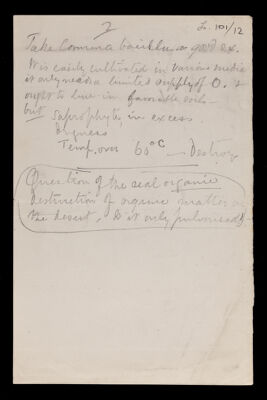 2
L. 101/12
Take Comma bacillus as good ex.
It is easily cultivated in various media
it only needs a limited supply of O. &
ought to live in favorable soils
but Saprophytes, in excess
dryness
Temp. over 60°C — Destroy
Question of the real organic
destruction of organic matter in
the desert. Is it only pulverised?